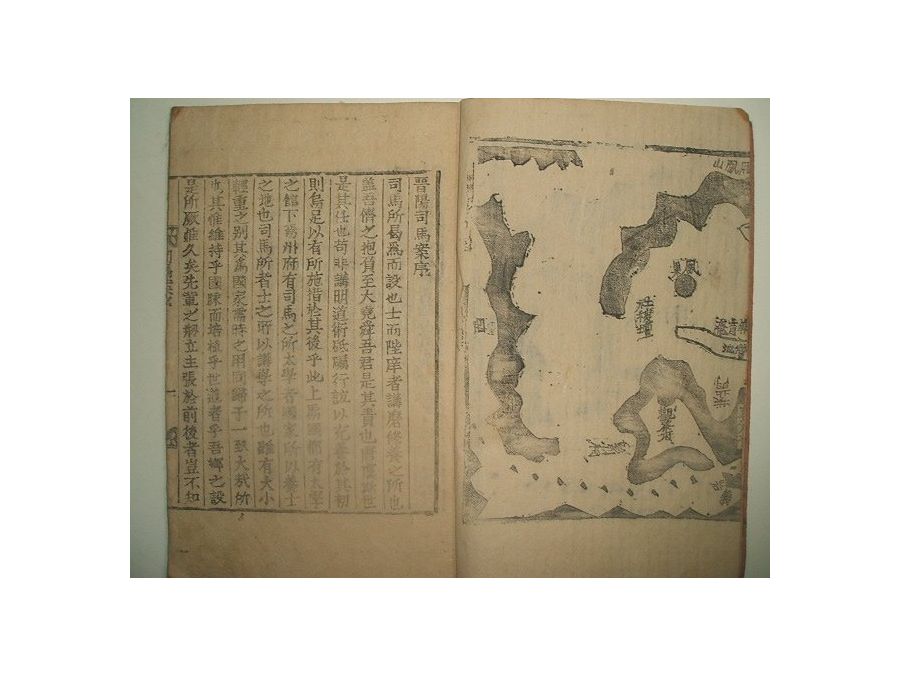 鳳山
鳳巢
社稷壇
晋陽司馬案序
司馬所曷爲而設也士而陞庠者講磨修養之所也
盖吾儕之抱負至大堯舜吾君是其責也虞斯世
是其任也苟非講明道術砥礪行誼以充養於其初
則烏足以有所施措於其後乎此上焉國都有太學
之館下焉州府有司馬之所太學者國家所以養士
之地也司馬所者士之所以講學之所也雖有大小
輕重之別其爲國家需時之用同歸于一致大哉所
也其惟維持乎國脉而培植乎世道者乎吾鄉之設
是所厥惟久矣先輩之刱立主張於前後者豈不知